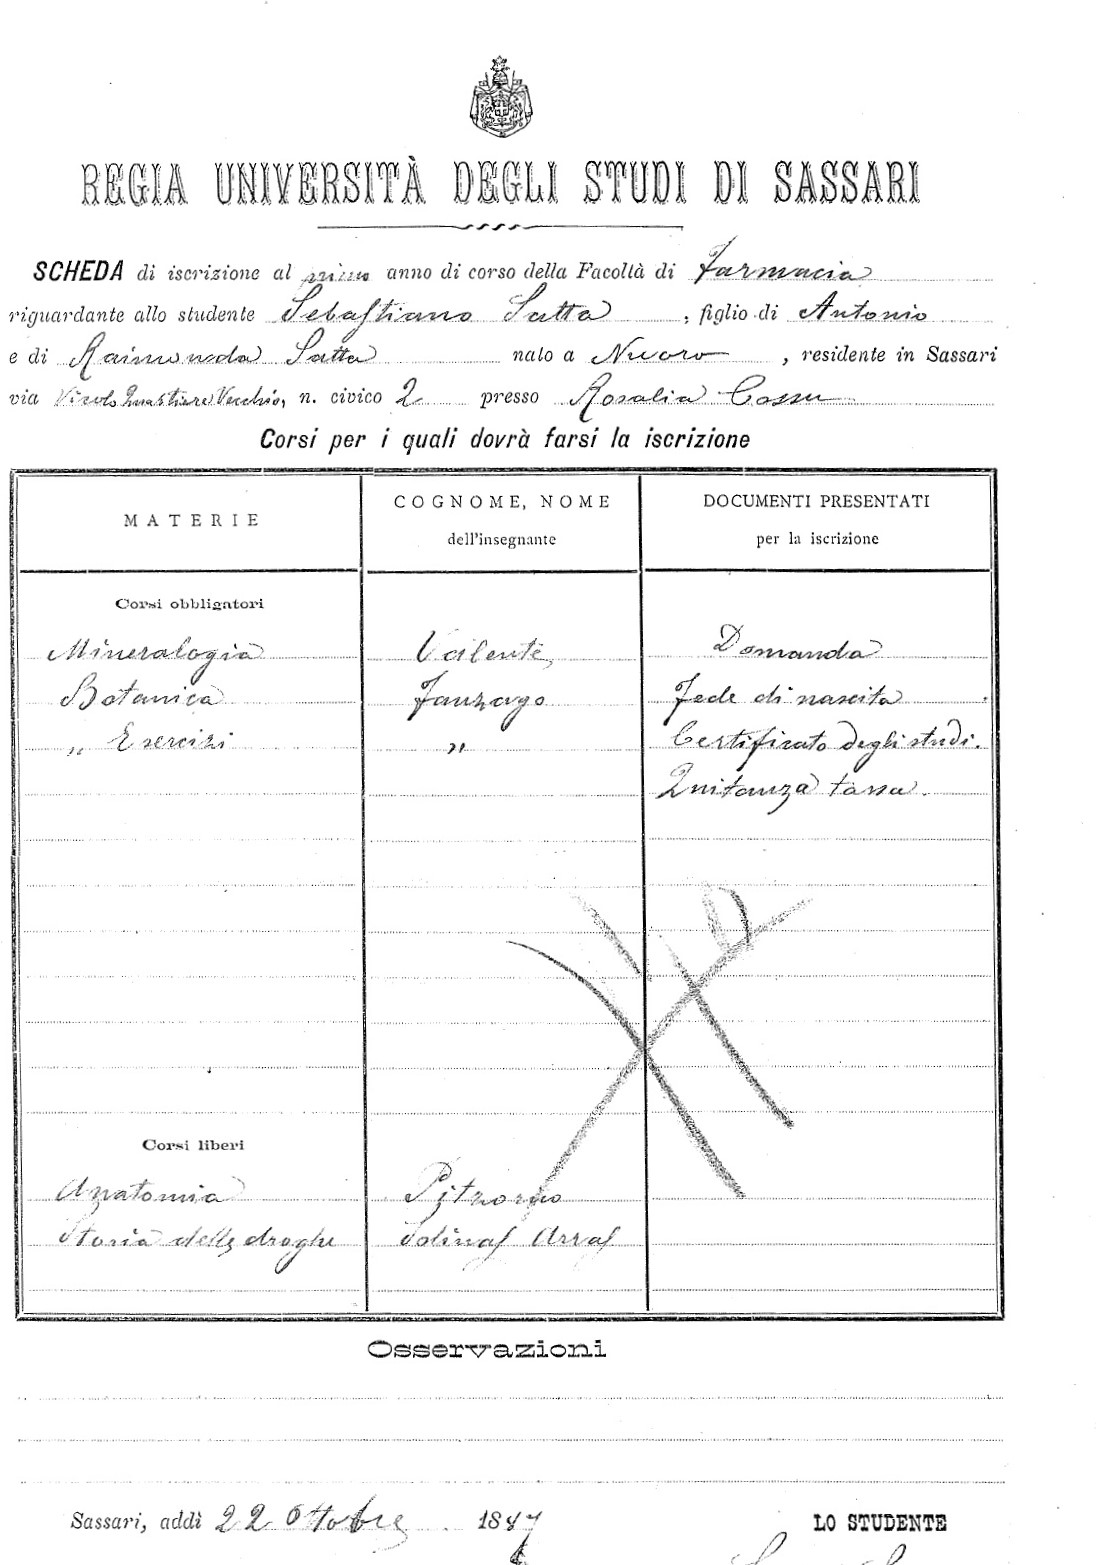 REGIA UNIVERSITÀ DEGLI STUDI DI SASSARI
SCHEDA di iscrizione al primo anno di corso della Facoltà di Farmacia
riguardante allo studente Sebastiano Satta, figlio di Antonio
e di Raimonda Satta nato a Nuoro, residente in Sassari
via Vicolo Quartiere Vecchio, n. civico 2 presso Rosalia Cossu
Corsi per i quali dovrà farsi la iscrizione
MATERIE COGNOME, NOME dell'insegnante DOCUMENTI PRESENTATI per la iscrizione
Corsi obbligatori
Mineralogia Valente Domanda
Botanica Fanzago Fede di nascita
„ Esercizi „ Certificato degli studi.
Quitanza tassa.
Corsi liberi
Anatomia Pitzorno
Storia delle droghe Solinas Arras
Osservazioni
Sassari, addì 22 Ottobre 1887
LO STUDENTE